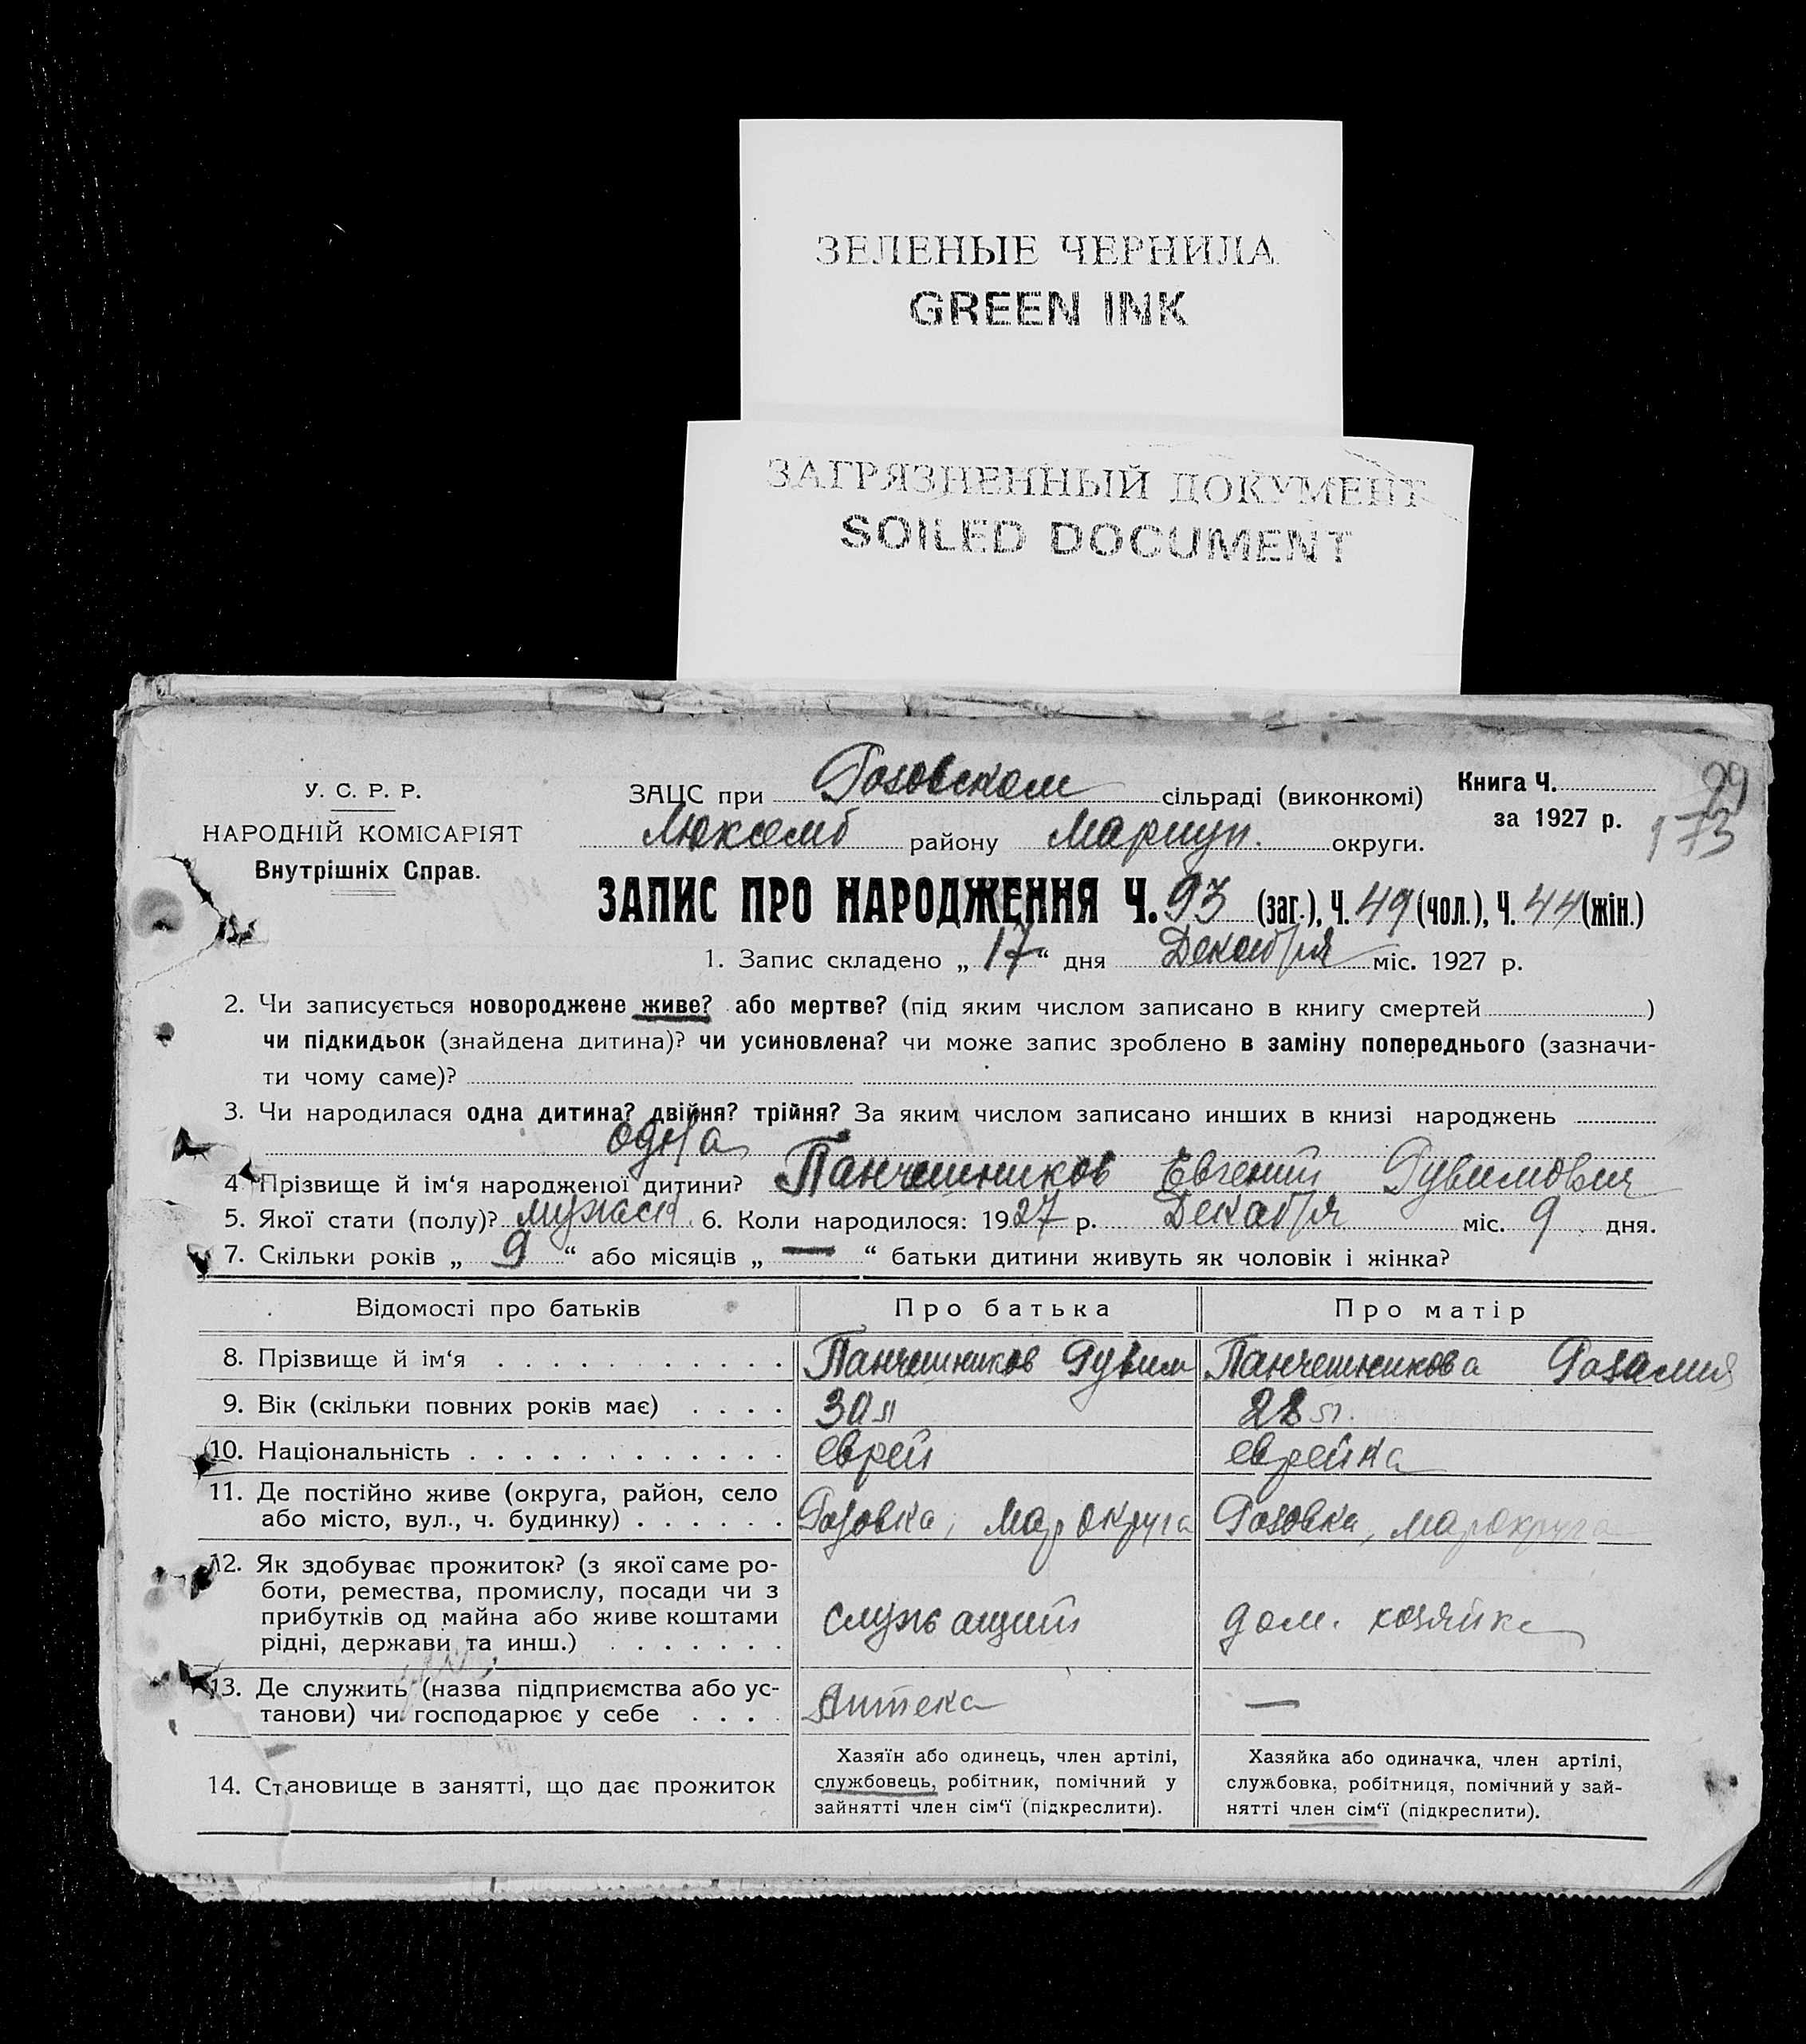 ЗЕЛЕНЫЕ ЧЕРНИЛА
GREEN INK
ЗАГРЯЗНЕННЫЙ ДОКУМЕНТ
SOILED DOCUMENT
У. С. Р. Р.
НАРОДНІЙ КОМІСАРІЯТ
Внутрішніх Справ.
ЗАЦС при Розовском сільраді (виконкомі)
Люксемб району Мариуп. округи.
Книга Ч.
за 1927 р.
99
173
ЗАПИС ПРО НАРОДЖЕННЯ Ч. 93 (заг.), Ч. 49 (чол.), Ч. 44 (жін.)
1. Запис складено „ 17 “ дня Декабря міс. 1927 р.
2. Чи записується новороджене живе? або мертве? (під яким числом записано в книгу смертей )
чи підкидьок (знайдена дитина)? чи усиновлена? чи може запис зроблено в заміну попереднього (зазначи-
ти чому саме)?
3. Чи народилася одна дитина? двійня? трійня? За яким числом записано инших в книзі народжень
одна
4 Прізвище й ім‘я народженої дитини? Панчешников Евгений Рувимович
5. Якої стати (полу)? мужск 6. Коли народилося: 1927 р. Декабря міс. 9 дня.
7. Скільки років „ 9 “ або місяців „ — “ батьки дитини живуть як чоловік і жінка?
Відомості про батьків Про батька Про матір
8. Прізвище й ім‘я Панчешников Рувим Панчешникова Розалия
9. Вік (скільки повних років має) 30 л 28 л.
10. Національність еврей еврейка
11. Де постійно живе (округа, район, село
або місто, вул., ч. будинку) Розовка, Мар округа Розовка, Мар округа
12. Як здобуває прожиток? (з якої саме ро-
боти, ремества, промислу, посади чи з
прибутків од майна або живе коштами
рідні, держави та инш.) служащий дом. хозяйка
13. Де служить (назва підприємства або ус-
танови) чи господарює у себе Аптека —
14. Становище в занятті, що дає прожиток
Хазяїн або одинець, член артілі,
службовець, робітник, помічний у
зайнятті член сім‘ї (підкреслити).
Хазяйка або одиначка, член артілі,
службовка, робітниця, помічний у зай-
нятті член сім‘ї (підкреслити).